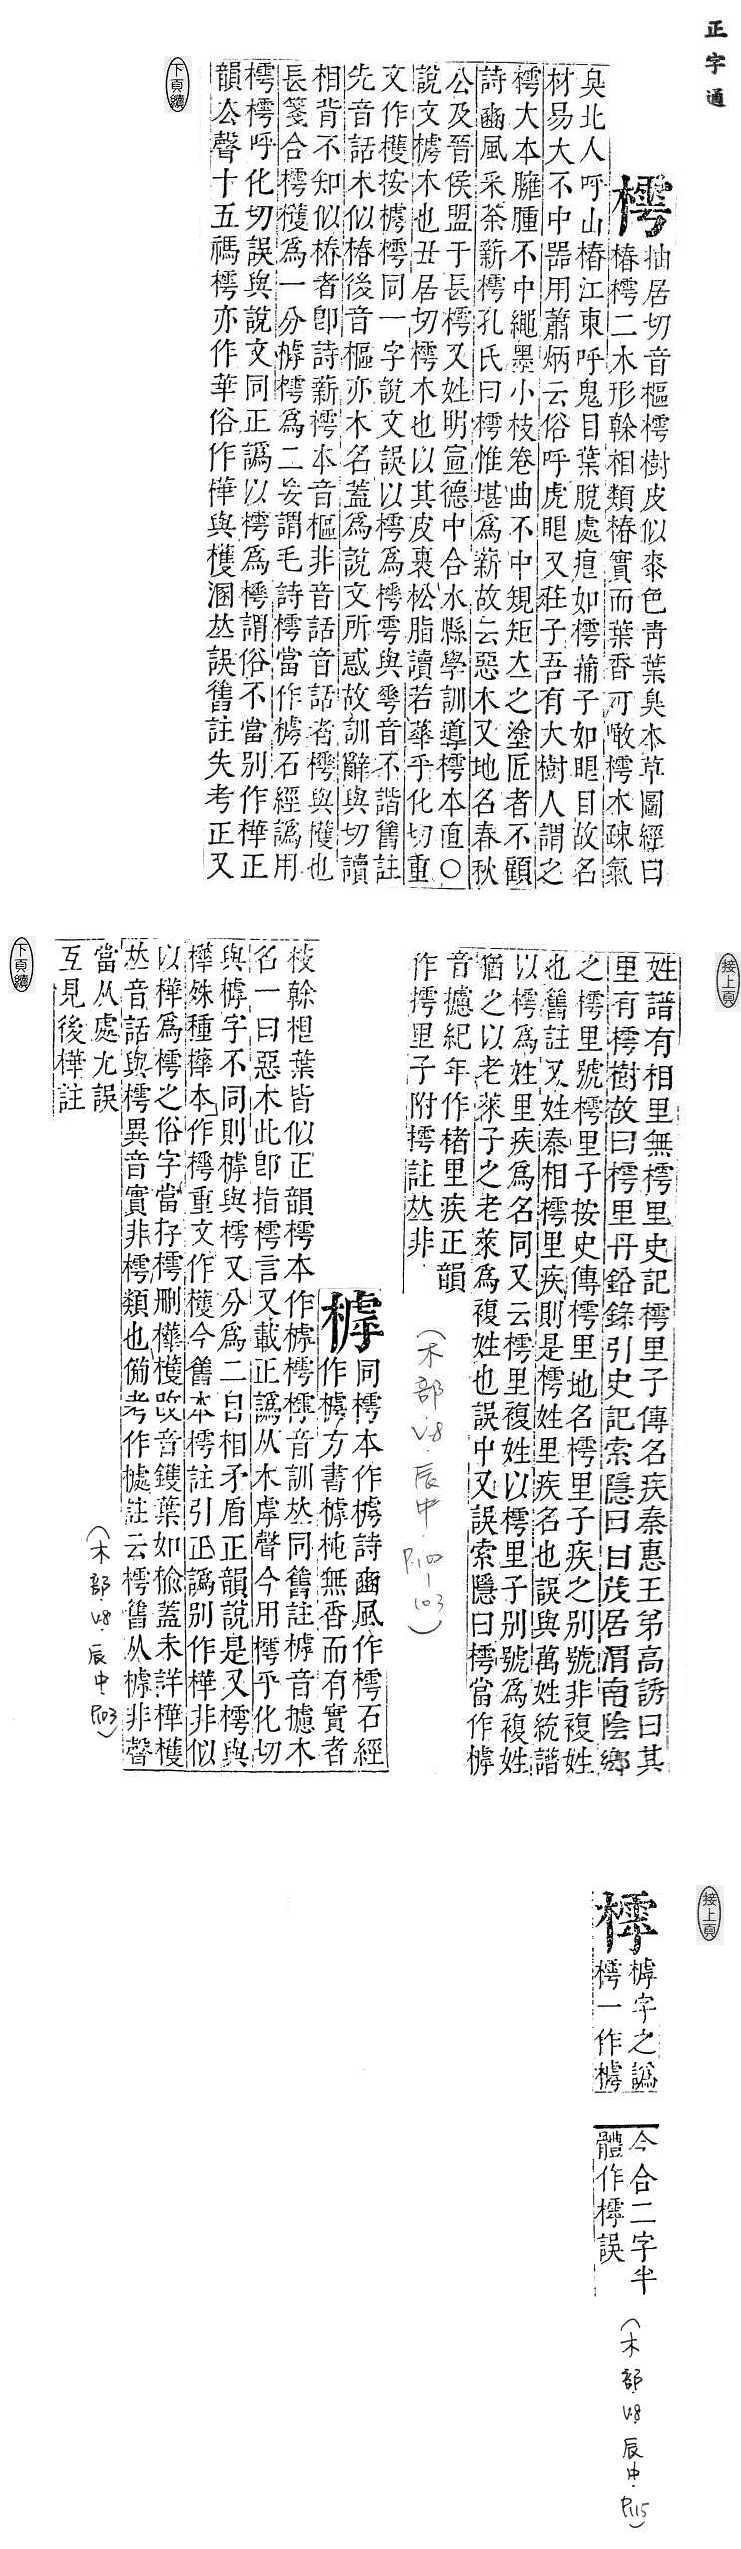 正字通
樗
抽居切音樞樗樹皮似桼色青葉臭本草圖經曰
椿樗二木形榦相類椿實而葉香可噉樗木疎氣
臭北人呼山椿江東呼鬼目葉脫處痕如樗蒱子如眼目故名
材易大不中器用蕭炳云俗呼虎眼又莊子吾有大樹人謂之
樗大本臃腫不中繩墨小枝卷曲不中規矩立之塗匠者不顧
詩豳風采荼薪樗孔氏曰樗惟堪為薪故云惡木又地名春秋
公及晉侯盟于長樗又姓明宣德中合水縣學訓導樗本直○
說文樗木也丑居切樗木也以其皮裹松脂讀若華乎化切重
文作檴按樗樗同一字說文誤以樗為樗雩與雩音不諧舊註
先音話木似椿後音樞亦木名蓋為說文所惑故訓辭與切讀
相背不知似椿者即詩薪樗本音樞非音話音話者樗與檴也
長箋合樗檴為一分樗樗為二妄謂毛詩樗當作樗石經譌用
樗樗呼化切誤與說文同正譌以樗為樗謂俗不當別作樺正
韻厺聲十五禡樗亦作華俗作樺與檴溷𠀤誤舊註失考正又
下頁續
接上頁
姓譜有相里無樗里史記樗里子傳名疾秦惠王弟高誘曰其
里有樗樹故曰樗里丹鉛錄引史記索隱曰甘茂居渭南陰鄉
之樗里號樗里子按史傳樗里地名樗里子疾之別號非複姓
也舊註又姓秦相樗里疾則是樗姓里疾名也誤與萬姓統譜
以樗為姓里疾為名同又云樗里複姓以樗里子別號為複姓
猶之以老萊子之老萊為複姓也誤中又誤索隱曰樗當作樗
音攄紀年作楮里疾正韻
作摴里子附樗註𠀤非
(木部.V.8.辰中.P.100-103)
樗
同樗本作樗詩豳風作樗石經
作樗方書樗杶無香而有實者
枝榦柤葉皆似正韻樗本作樗樗樗音訓𠀤同舊註樗音攄木
名一曰惡木此即指樗言又載正譌从木虖聲今用樗乎化切
與樗字不同則樗與樗又分為二自相矛盾正韻說是又樗與
樺殊種樺本作樗重文作檴今舊本樗註引正譌別作樺非似
以樺為樗之俗字當存樗刪樺檴改音鑊葉如楡蓋未詳樺檴
𠀤音話與樗異音實非樗類也備考作㯉註云樗舊从樗非聲
當从處尤誤
互見後樺註
(木部.V.8.辰中.P.103)
下頁續
接上頁
樗
樗字之譌
樗一作樗
今合二字半
體作樗誤
(木部.V.8.辰中.P.115)